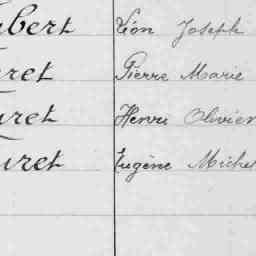 bert Léon Joseph
ret Pierre Marie
uret Henri Olivier
uret Eugène Michel